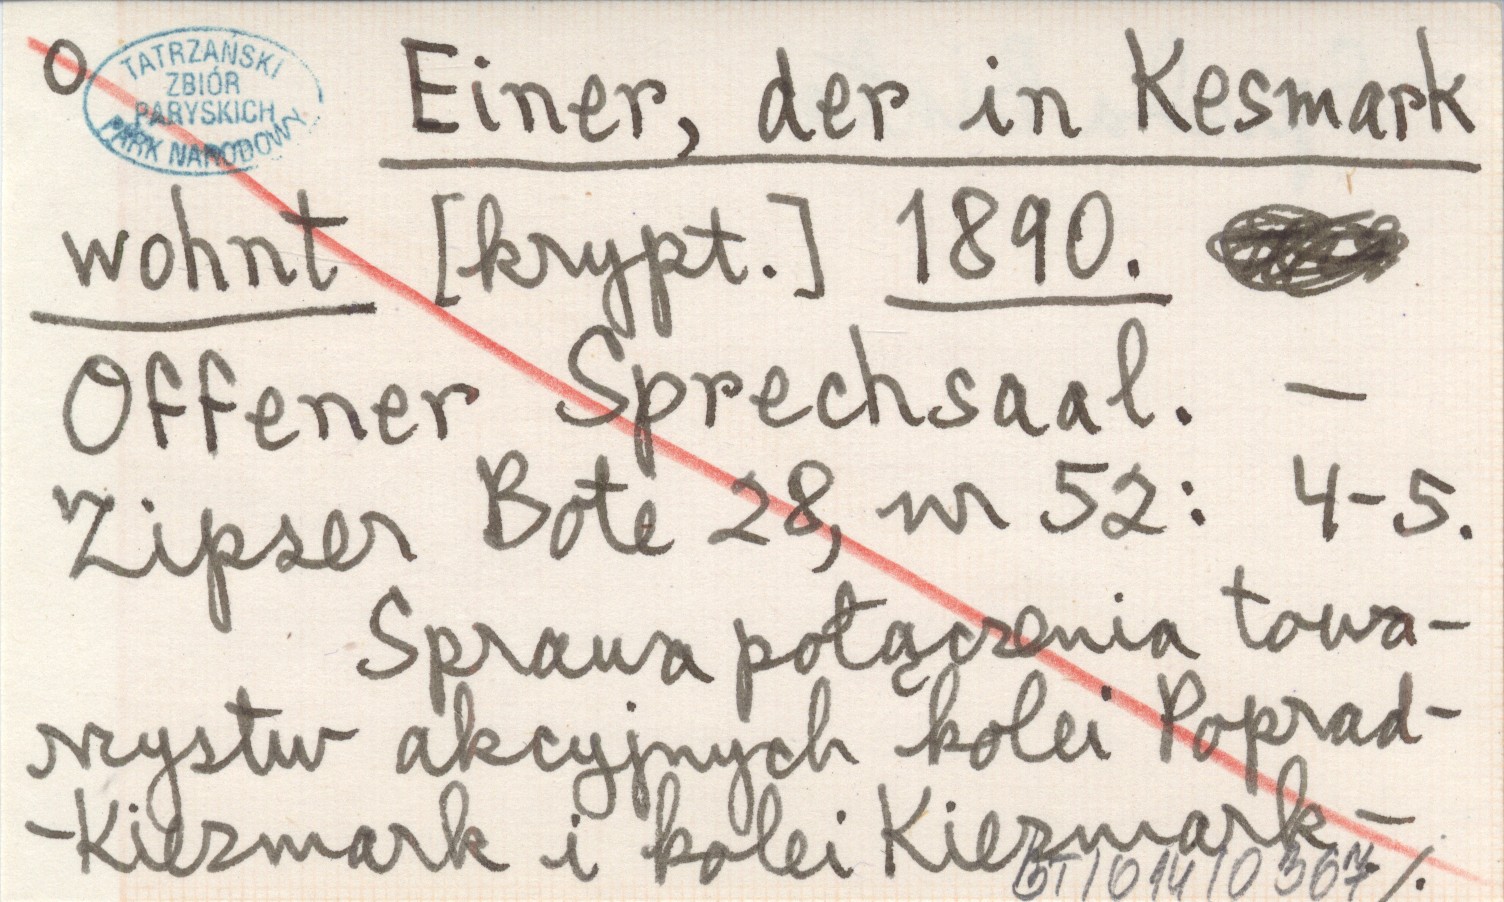 O
TATRZAŃSKI
ZBIÓR
PARYSKICH
PARK NARODOWY
Einer, der in Kesmark
wohnt [krypt.] 1890.
Offener Sprechsaal. —
Zipser Bote 28, nr 52: 4-5.
Sprawa połączenia towa-
rzystw akcyjnych kolei Poprad-
-Kiezmark i kolei Kiezmark-
BT/014/0367 /.